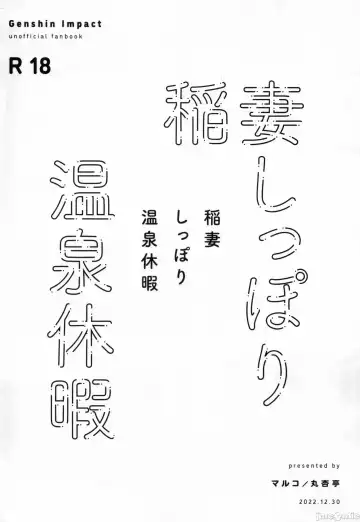 Genshin Impact
unofficial fanbook
R 18
稲妻しっぽり
温泉休暇
稲妻
しっぽり
温泉休暇
presented by
マルコ／丸杏亭
2022.12.30